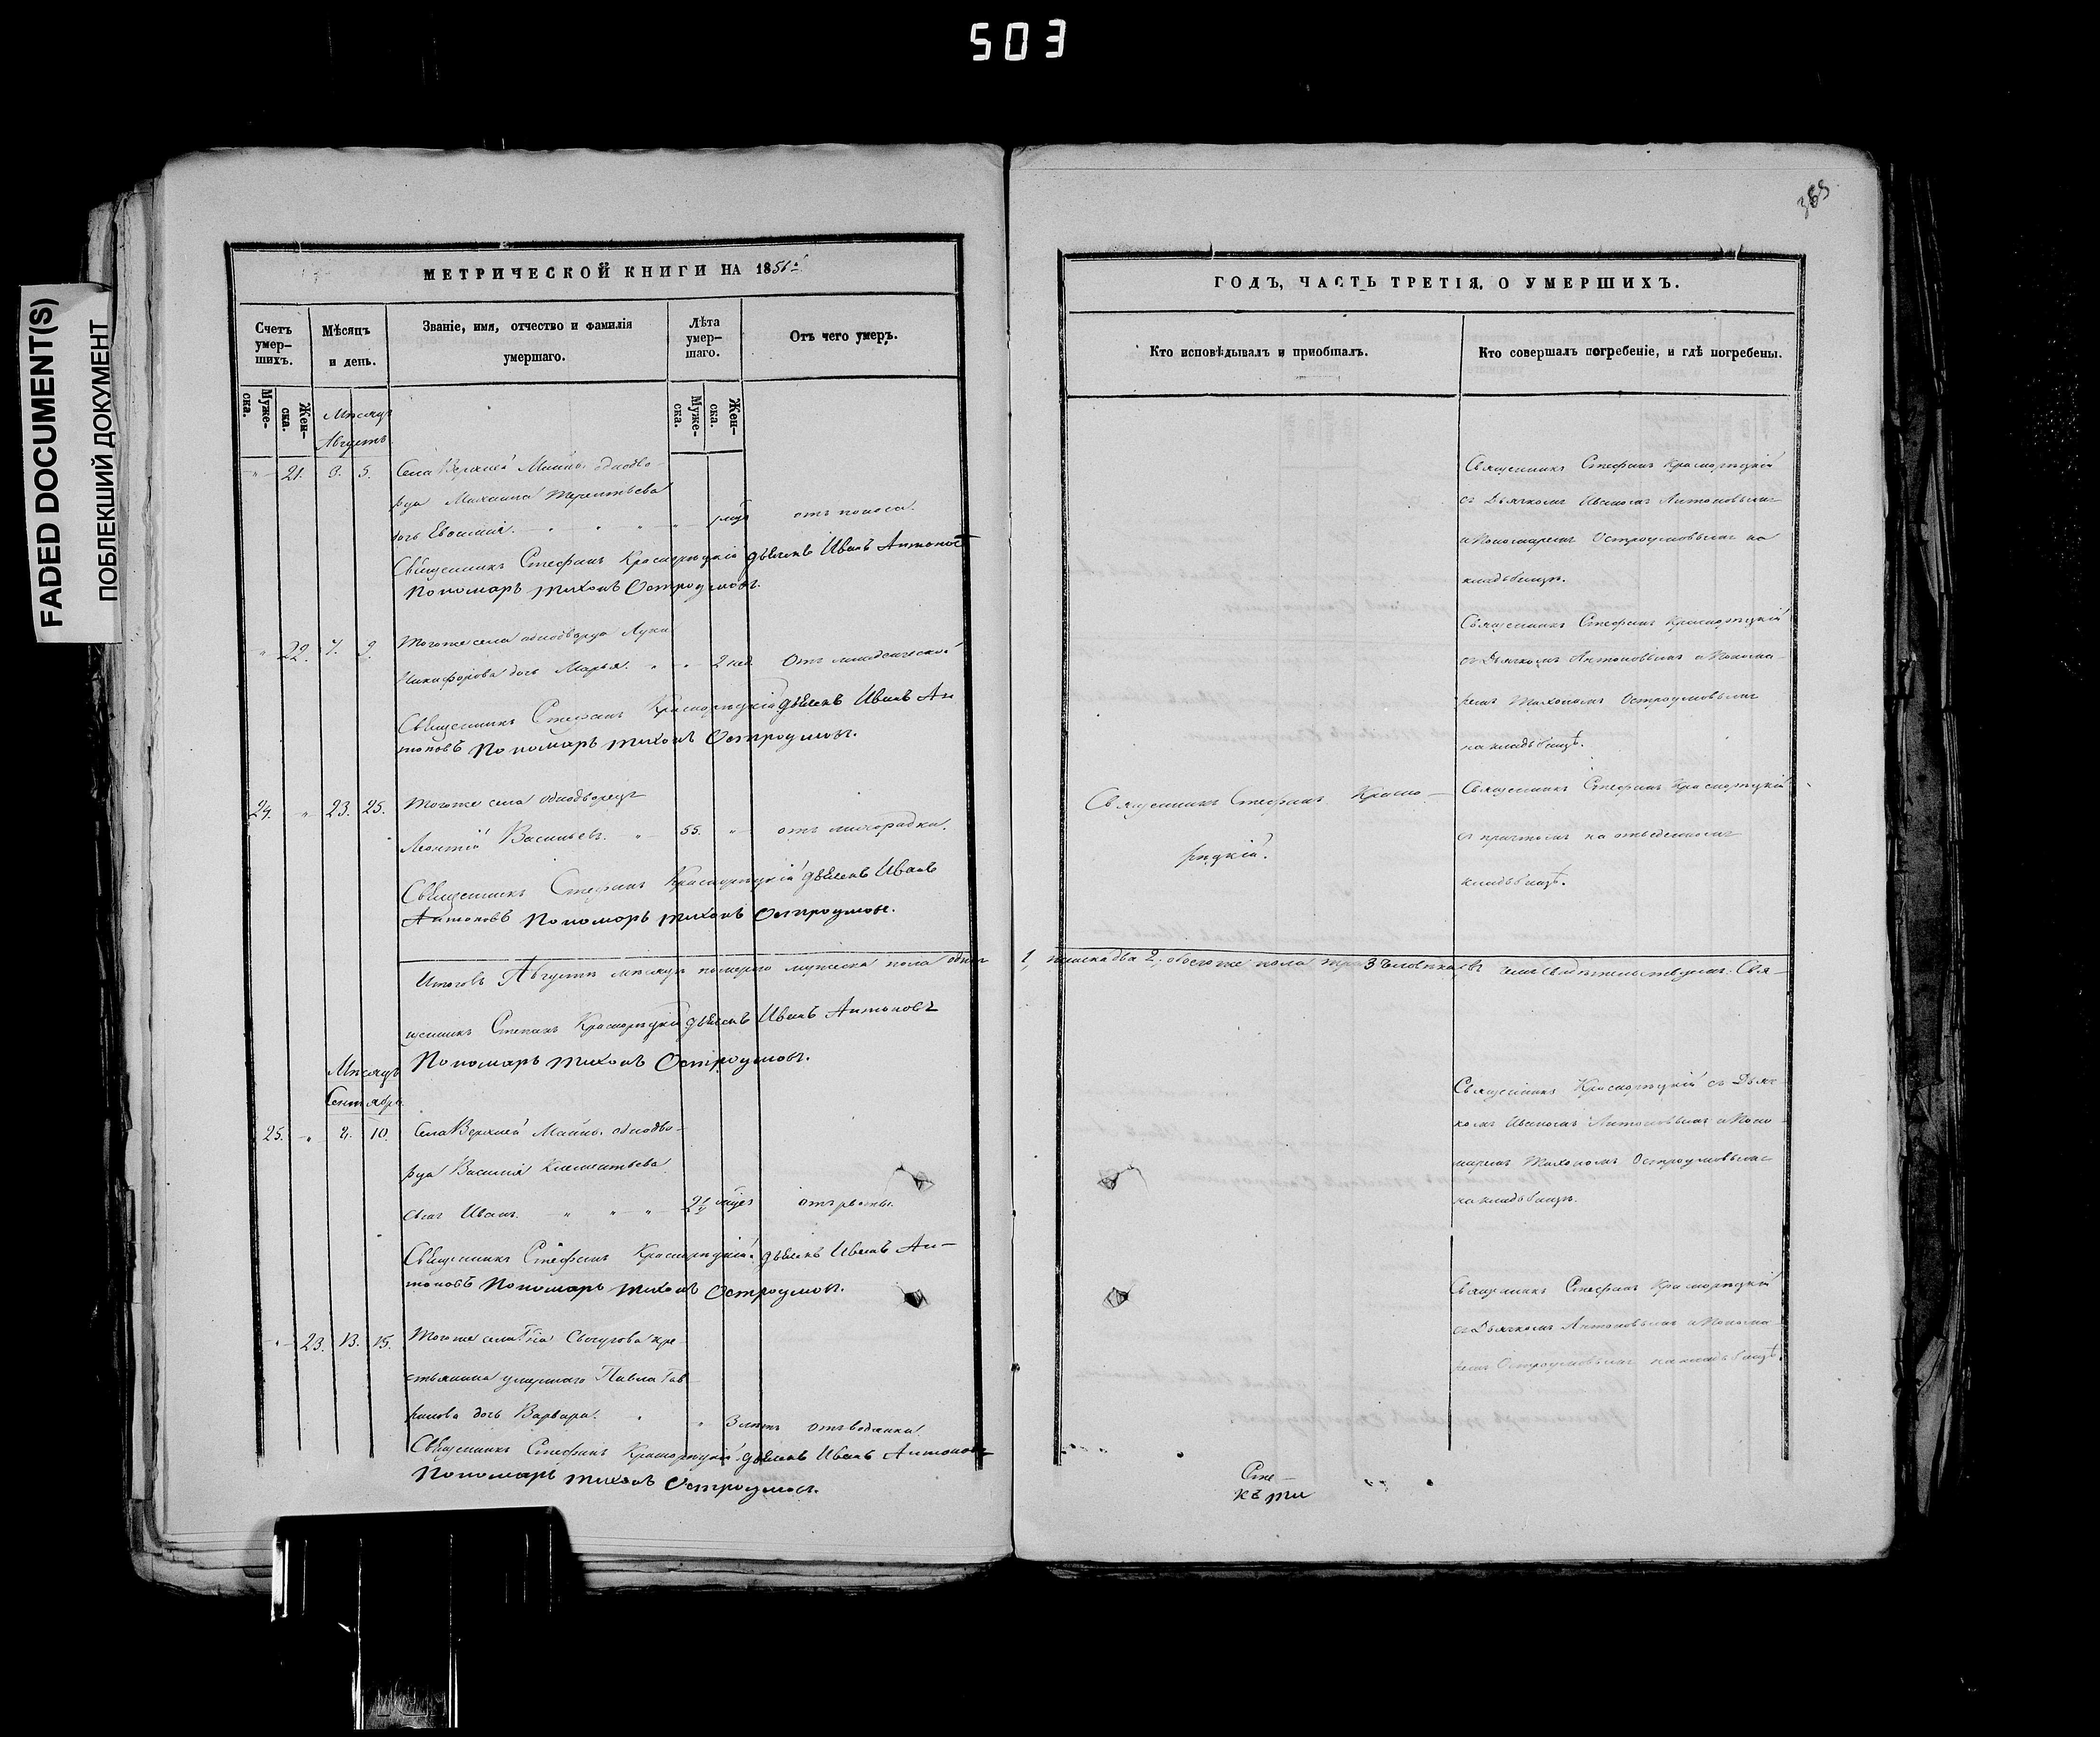 503
FADED DOCUMENT(S)
ПОБЛЕКШИЙ ДОКУМЕНТ
МЕТРИЧЕСКОЙ КНИГИ НА 1851й
Счетъ умер-шихъ.
Мѣсяцъ и день.
Званіе, имя, отчество и фамилія умершаго.
Лѣта умер-шаго.
Отъ чего умеръ.
Муже-ска.
Жен-ска.
Муже-ска.
Жен-ска.
Мѣсяцъ
Августъ.
21. 3. 5. Села Верхней Майны однодво-
рца Михаила Терентьева
дочь Евфимія. отъ поноса.
Священникъ Стефанъ Красноряцкій дьячекъ Иванъ Антоновъ
Пономарь Тихонъ Остроумовъ.
22. 7. 9. Тогоже села однодворца Луки
Никифорова дочь Марья. 2 нед. Отъ младенческой
Священникъ Стефанъ Красноряцкій дьячекъ Иванъ Ан
тоновъ Пономарь Тихонъ Остроумовъ.
24. 23. 25. Тогоже села однодворецъ
Леонтій Васильевъ. 55. отъ лихорадки.
Священникъ Стефанъ Красноряцкій дьячекъ Иванъ
Антоновъ Пономарь Тихонъ Остроумовъ.
Итого въ Августѣ мѣсяцѣ померло мужеска пола одинъ
щенникъ Стефанъ Красноряцкій дьячекъ Иванъ Антоновъ
Пономарь Тихонъ Остроумовъ.
Мѣсяцъ
Сентябрь.
25. 10. Села Верхней Майны однодво-
рца Василія Климентьева
сынъ Иванъ. отъ рвоты.
Священникъ Стефанъ Красноряцкій. дьячекъ Иванъ Ан-
тоновъ Пономарь Тихонъ Остроумовъ.
23. 13. 15. Тогоже села кре-
стьянина умершаго Павла Гав-
рилова дочь Варвара. 3 лѣтъ отъ водянки.
Священникъ Стефанъ Красноряцкій дьячекъ Иванъ Антоновъ
Пономарь Тихонъ Остроумовъ.
ГОДЪ, ЧАСТЬ ТРЕТІЯ, О УМЕРШИХЪ.
Кто исповѣдывалъ и пріобщалъ.
Кто совершалъ погребеніе, и гдѣ погребены.
Священникъ Стефанъ Красноряцкій
съ Дьячкомъ Иваномъ Антоновымъ
и Пономаремъ Остроумовымъ на
кладбищѣ.
Священникъ Стефанъ Красноряцкій
съ Дьячкомъ Антоновымъ и Понома-
ремъ Тихономъ Остроумовымъ
на кладбищѣ.
Священникъ Стефанъ Красно-
ряцкій.
Священникъ Стефанъ Красноряцкій
съ причтомъ на отведенномъ
кладбищѣ.
1, женска два 2, обоего же пола три 3 человѣка, въ чемъ свидѣтельствуемъ: Свя-
Священникъ Красноряцкій съ Дьяч-
комъ Иваномъ Антоновымъ и Поно-
маремъ Тихономъ Остроумовымъ
на кладбищѣ.
Священникъ Стефанъ Красноряцкій
съ Дьячкомъ Антоновымъ и Понома-
ремъ Остроумовымъ на кладбищѣ.
Сте-
къ Ти